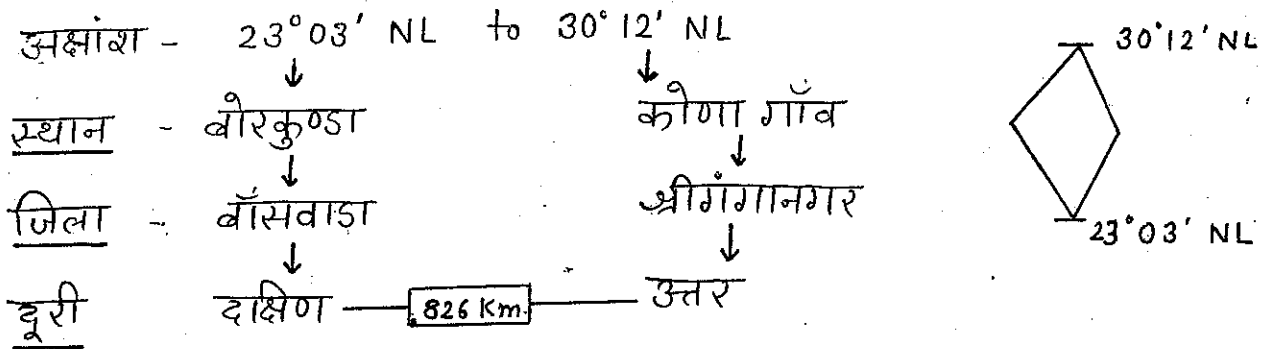 अक्षांश - 23°03' NL to 30°12' NL
स्थान - बोरकुण्डा कोणा गाँव
जिला - बाँसवाडा श्रीगंगानगर
दूरी दक्षिण 826 Km. उत्तर
30°12' NL
23°03' NL